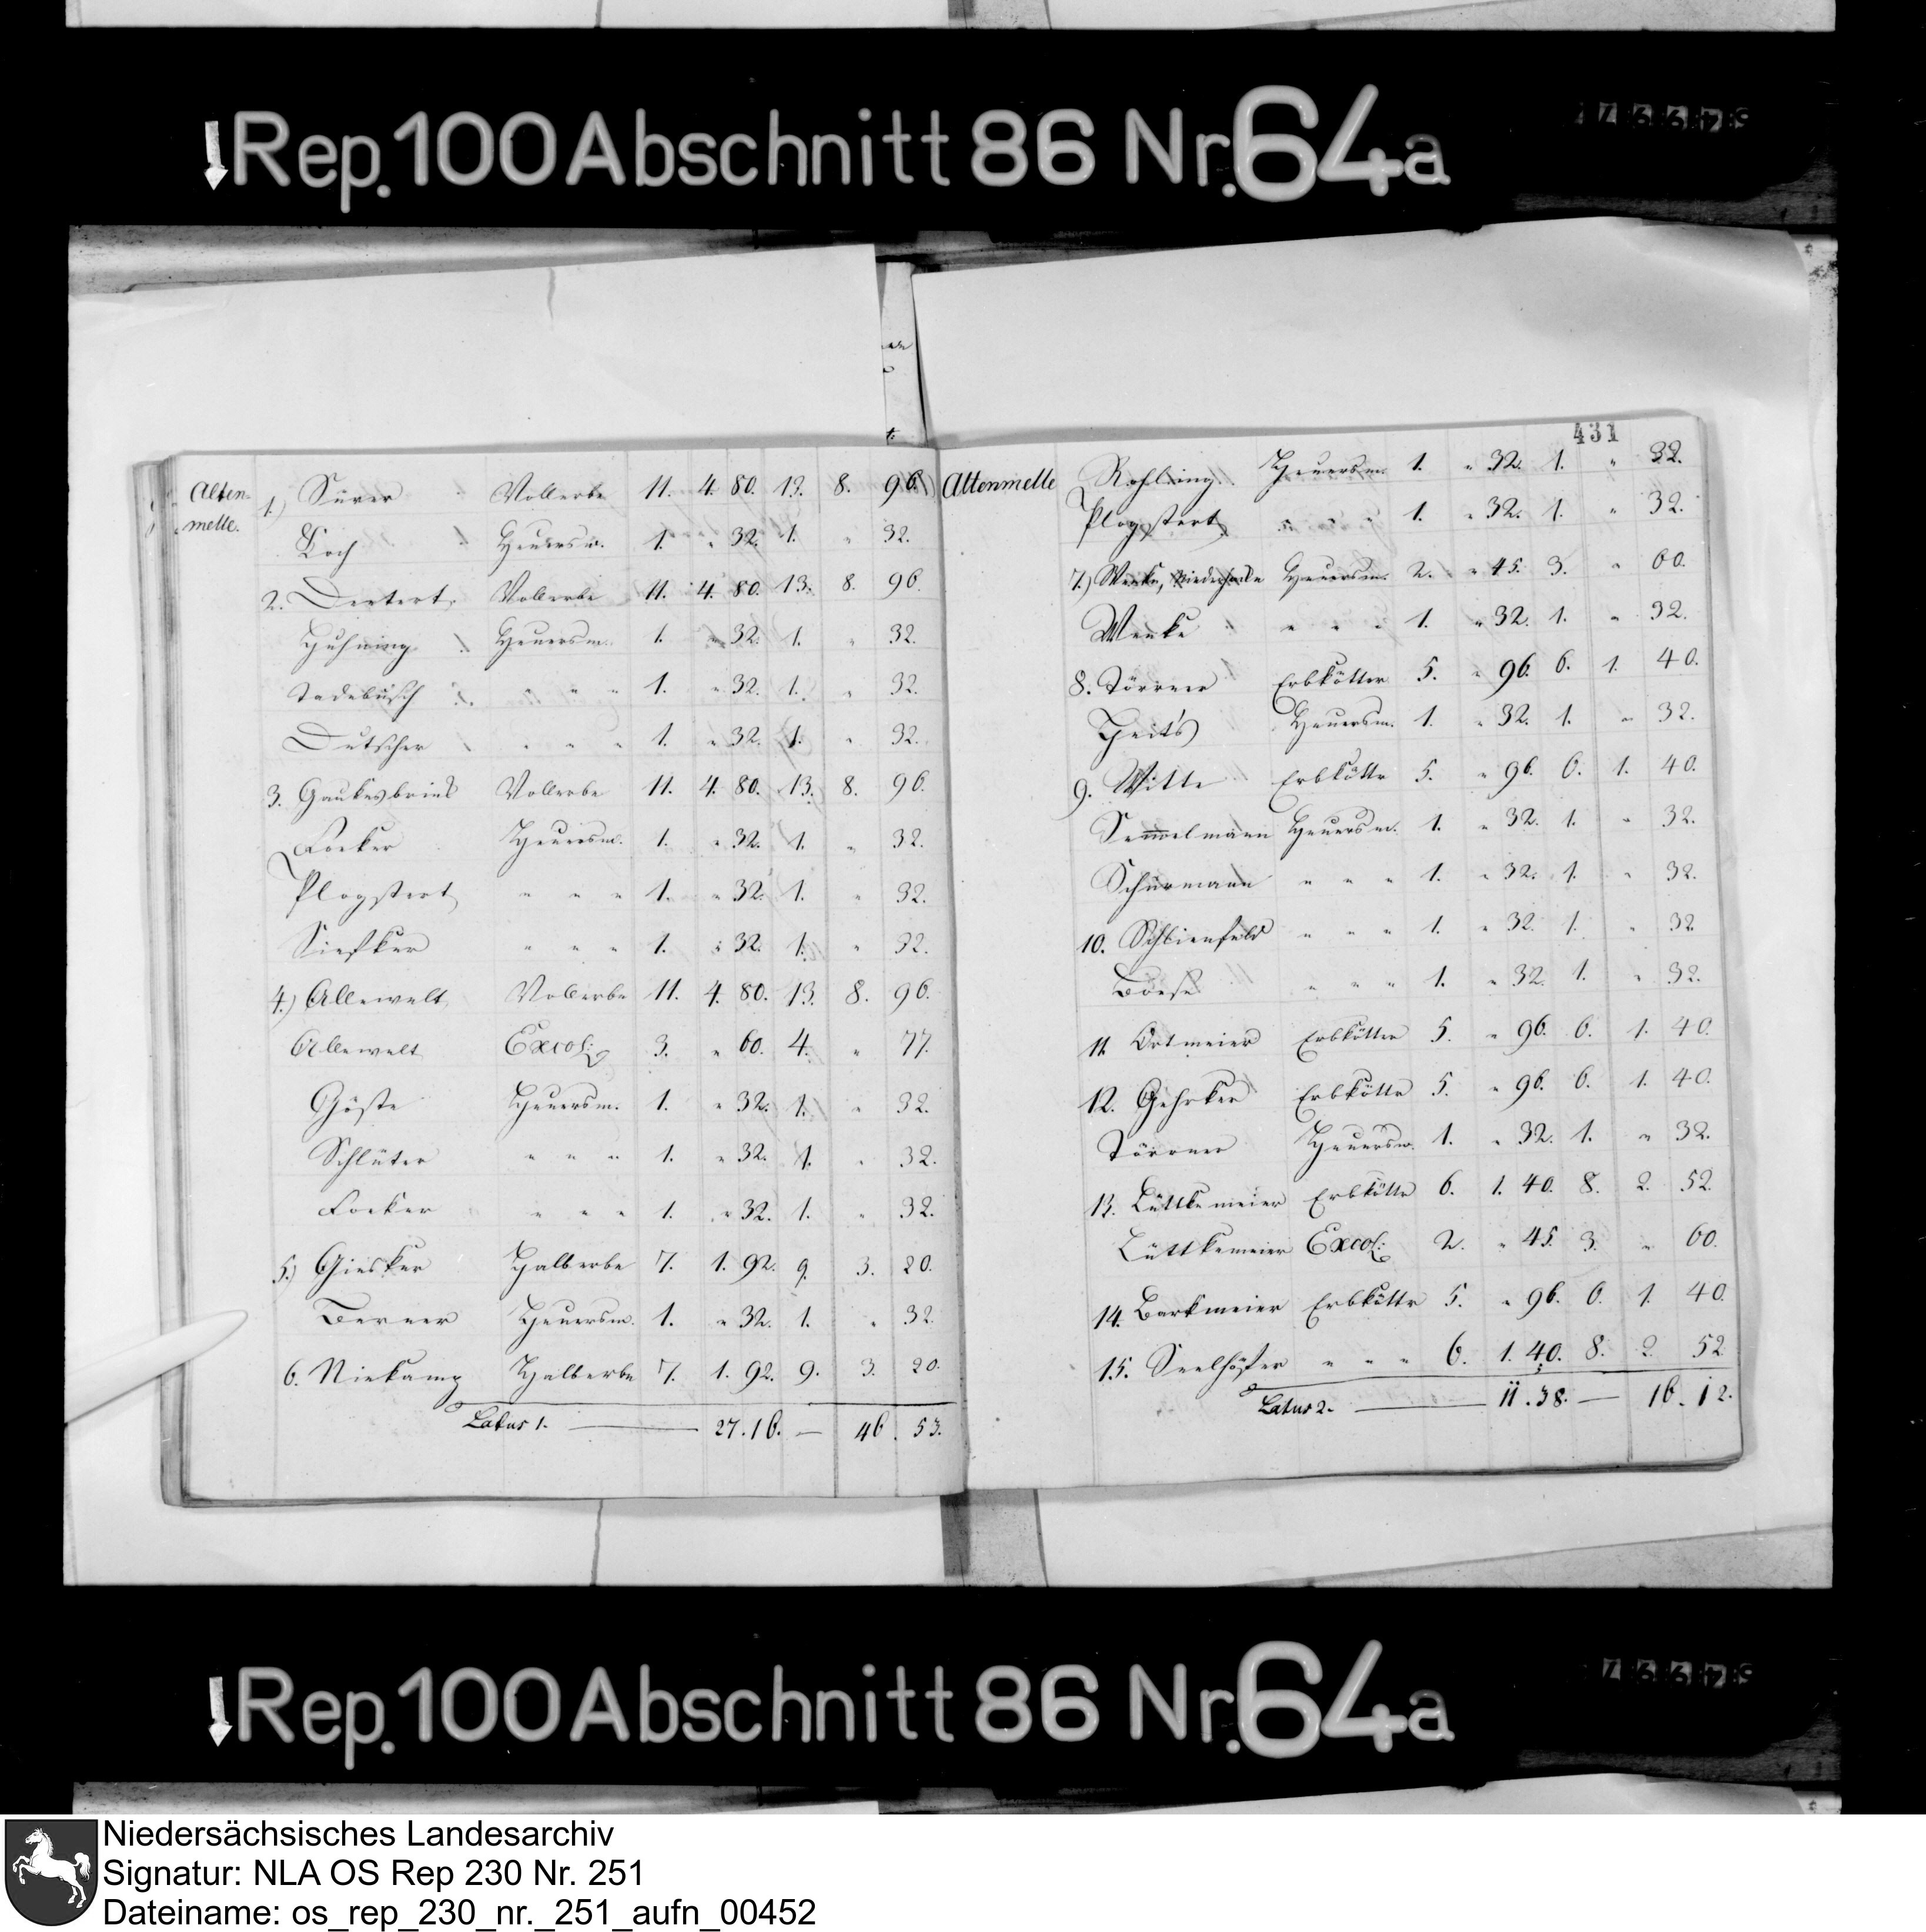 Rep. 100 Abschnitt 86 Nr. 64a
Alten-
melle.
1.) Sürer Vollerbe 11. 4. 80. 13. 8. 96.
Koch Heuersm. 1. " 32. 1. " 32.
2. Vollerbe 11. 4. 80. 13. 8. 96.
Huhning Heuersm. 1. " 32. 1. " 32.
Tadebusch " " " 1. " 32. 1. " 32.
Dutscher " " " 1. " 32. 1. " 32.
3. Gaukesbrink Vollerbe 11. 4. 80. 13. 8. 96.
Focker Heuersm. 1. " 32. 1. " 32.
Plogstert " " " 1. " 32. 1. " 32.
Siefker " " " 1. " 32. 1. " 32.
4.) Allewelt Vollerbe 11. 4. 80. 13. 8. 96.
Allewelt Excol: 3. " 60. 4. " 77.
Göste Heuersm. 1. " 32. 1. " 32.
Schlüter " " " 1. " 32. 1. " 32.
Focker " " " 1. " 32. 1. " 32.
5.) Giesker Halberbe 7. 1. 92. 9. 3. 20.
Berner Heuersm. 1. " 32. 1. " 32.
6. Niekamp Halberbe 7. 1. 92. 9. 3. 20.
Latus 1. — 27. 16. — 46. 53.
431
Altenmelle
Rohling Heuersm. 1. " 32. 1. " 32.
Plogstert " " " 1. " 32. 1. " 32.
7.) Wenke, Heuersm. 2. " 45. 3. " 60.
Wenke " " " 1. " 32. 1. " 32.
8. Törner Erbkötter 5. " 96. 6. 1. 40.
Heuersm. 1. " 32. 1. " 32.
9. Witte Erbkötter 5. " 96. 6. 1. 40.
Semmelmann Heuersm. 1. " 32. 1. " 32.
Schürmann " " " 1. " 32. 1. " 32.
10. Schlienfeld " " " 1. " 32. 1. " 32.
Boese " " " 1. " 32. 1. " 32.
11. Ortmeier Erbkötter 5. " 96. 6. 1. 40.
12. Gehrker Erbkötter 5. " 96. 6. 1. 40.
Törner Heuersm. 1. " 32. 1. " 32.
13. Lüttkemeier Erbkötter 6. 1. 40. 8. 2. 52.
Lüttkemeier Excol: 2. " 45. 3. " 60.
14. Barkmeier Erbkötter 5. " 96. 6. 1. 40.
15. Seelhöfer " " " 6. 1. 40. 8. 2. 52
Latus 2. — 11. 38. — 16. 12.
Rep. 100 Abschnitt 86 Nr. 64a
Niedersächsisches Landesarchiv
Signatur: NLA OS Rep 230 Nr. 251
Dateiname: os_rep_230_nr._251_aufn_00452